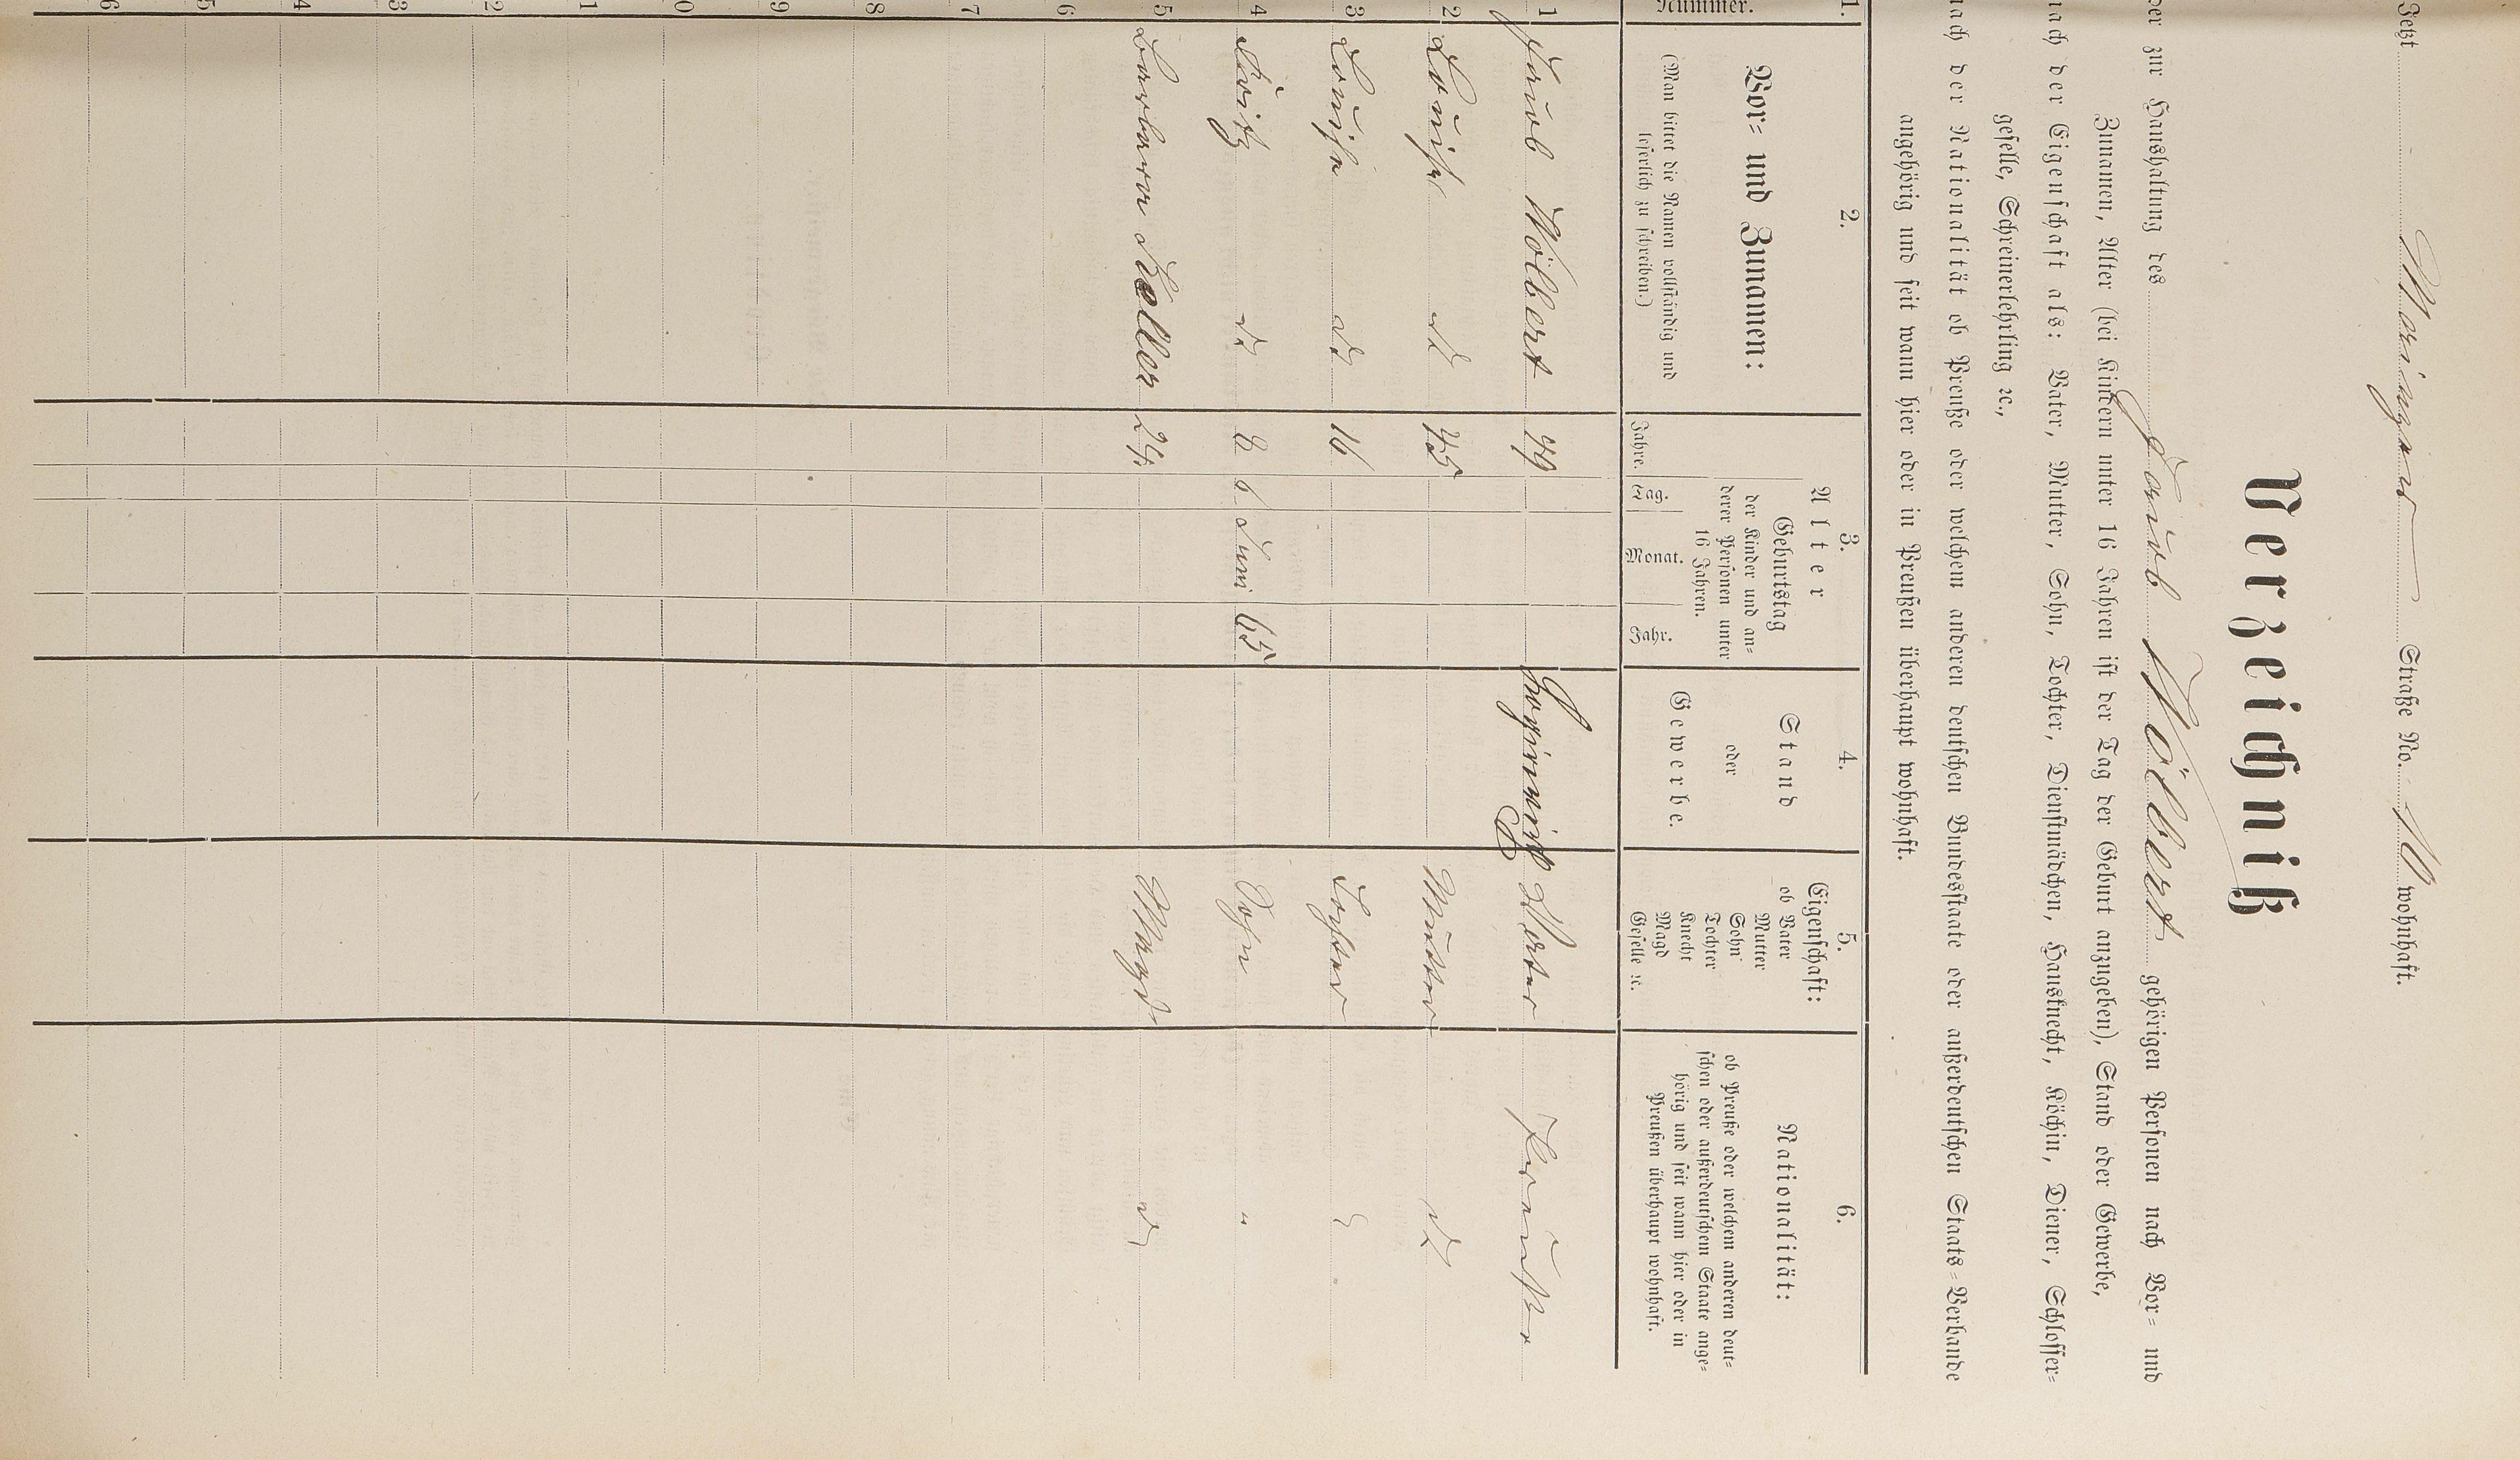 Jetzt Mainzer Straße No. 10 wohnhaft.
Verzeichniß
der zur Haushaltung des Jacob Wölbert gehörigen Personen nach Vor- und
Zunamen, Alter (bei Kindern unter 16 Jahren ist der Tag der Geburt anzugeben), Stand oder Gewerbe,
nach der Eigenschaft als: Vater, Mutter, Sohn, Tochter, Dienstmädchen, Hausknecht, Köchin, Diener, Schlosser-
geselle, Schreinerlehrling ꝛc.,
nach der Nationalität ob Preuße oder welchem anderen deutschen Bundesstaate oder außerdeutschen Staats-Verbande
angehörig und seit wann hier oder in Preußen überhaupt wohnhaft.
1. 2. 3. 4. 5. 6.
Nummer.
Vor- und Zunamen:
(Man bittet die Namen vollständig und
leserlich zu schreiben.)
Alter
Geburtstag
der Kinder und an-
derer Personen unter
16 Jahren.
Jahre. Tag. Monat. Jahr.
Stand
oder
Gewerbe.
Eigenschaft:
ob Vater
Mutter
Sohn
Tochter
Knecht
Magd
Geselle ꝛc.
Nationalität:
ob Preuße oder welchem anderen deut-
schen oder außerdeutschem Staate ange-
hörig und seit wann hier oder in
Preußen überhaupt wohnhaft.
1 Jacob Wölbert 49 Vater Preuße
2 Louise do 45 Mutter do
3 Louise do 16 Tochter
4 Fritz do 2 6 Juni 65 Sohn "
5 Barbara Koller 24 Magd do
6
7
8
9
0
1
2
3
4
5
6